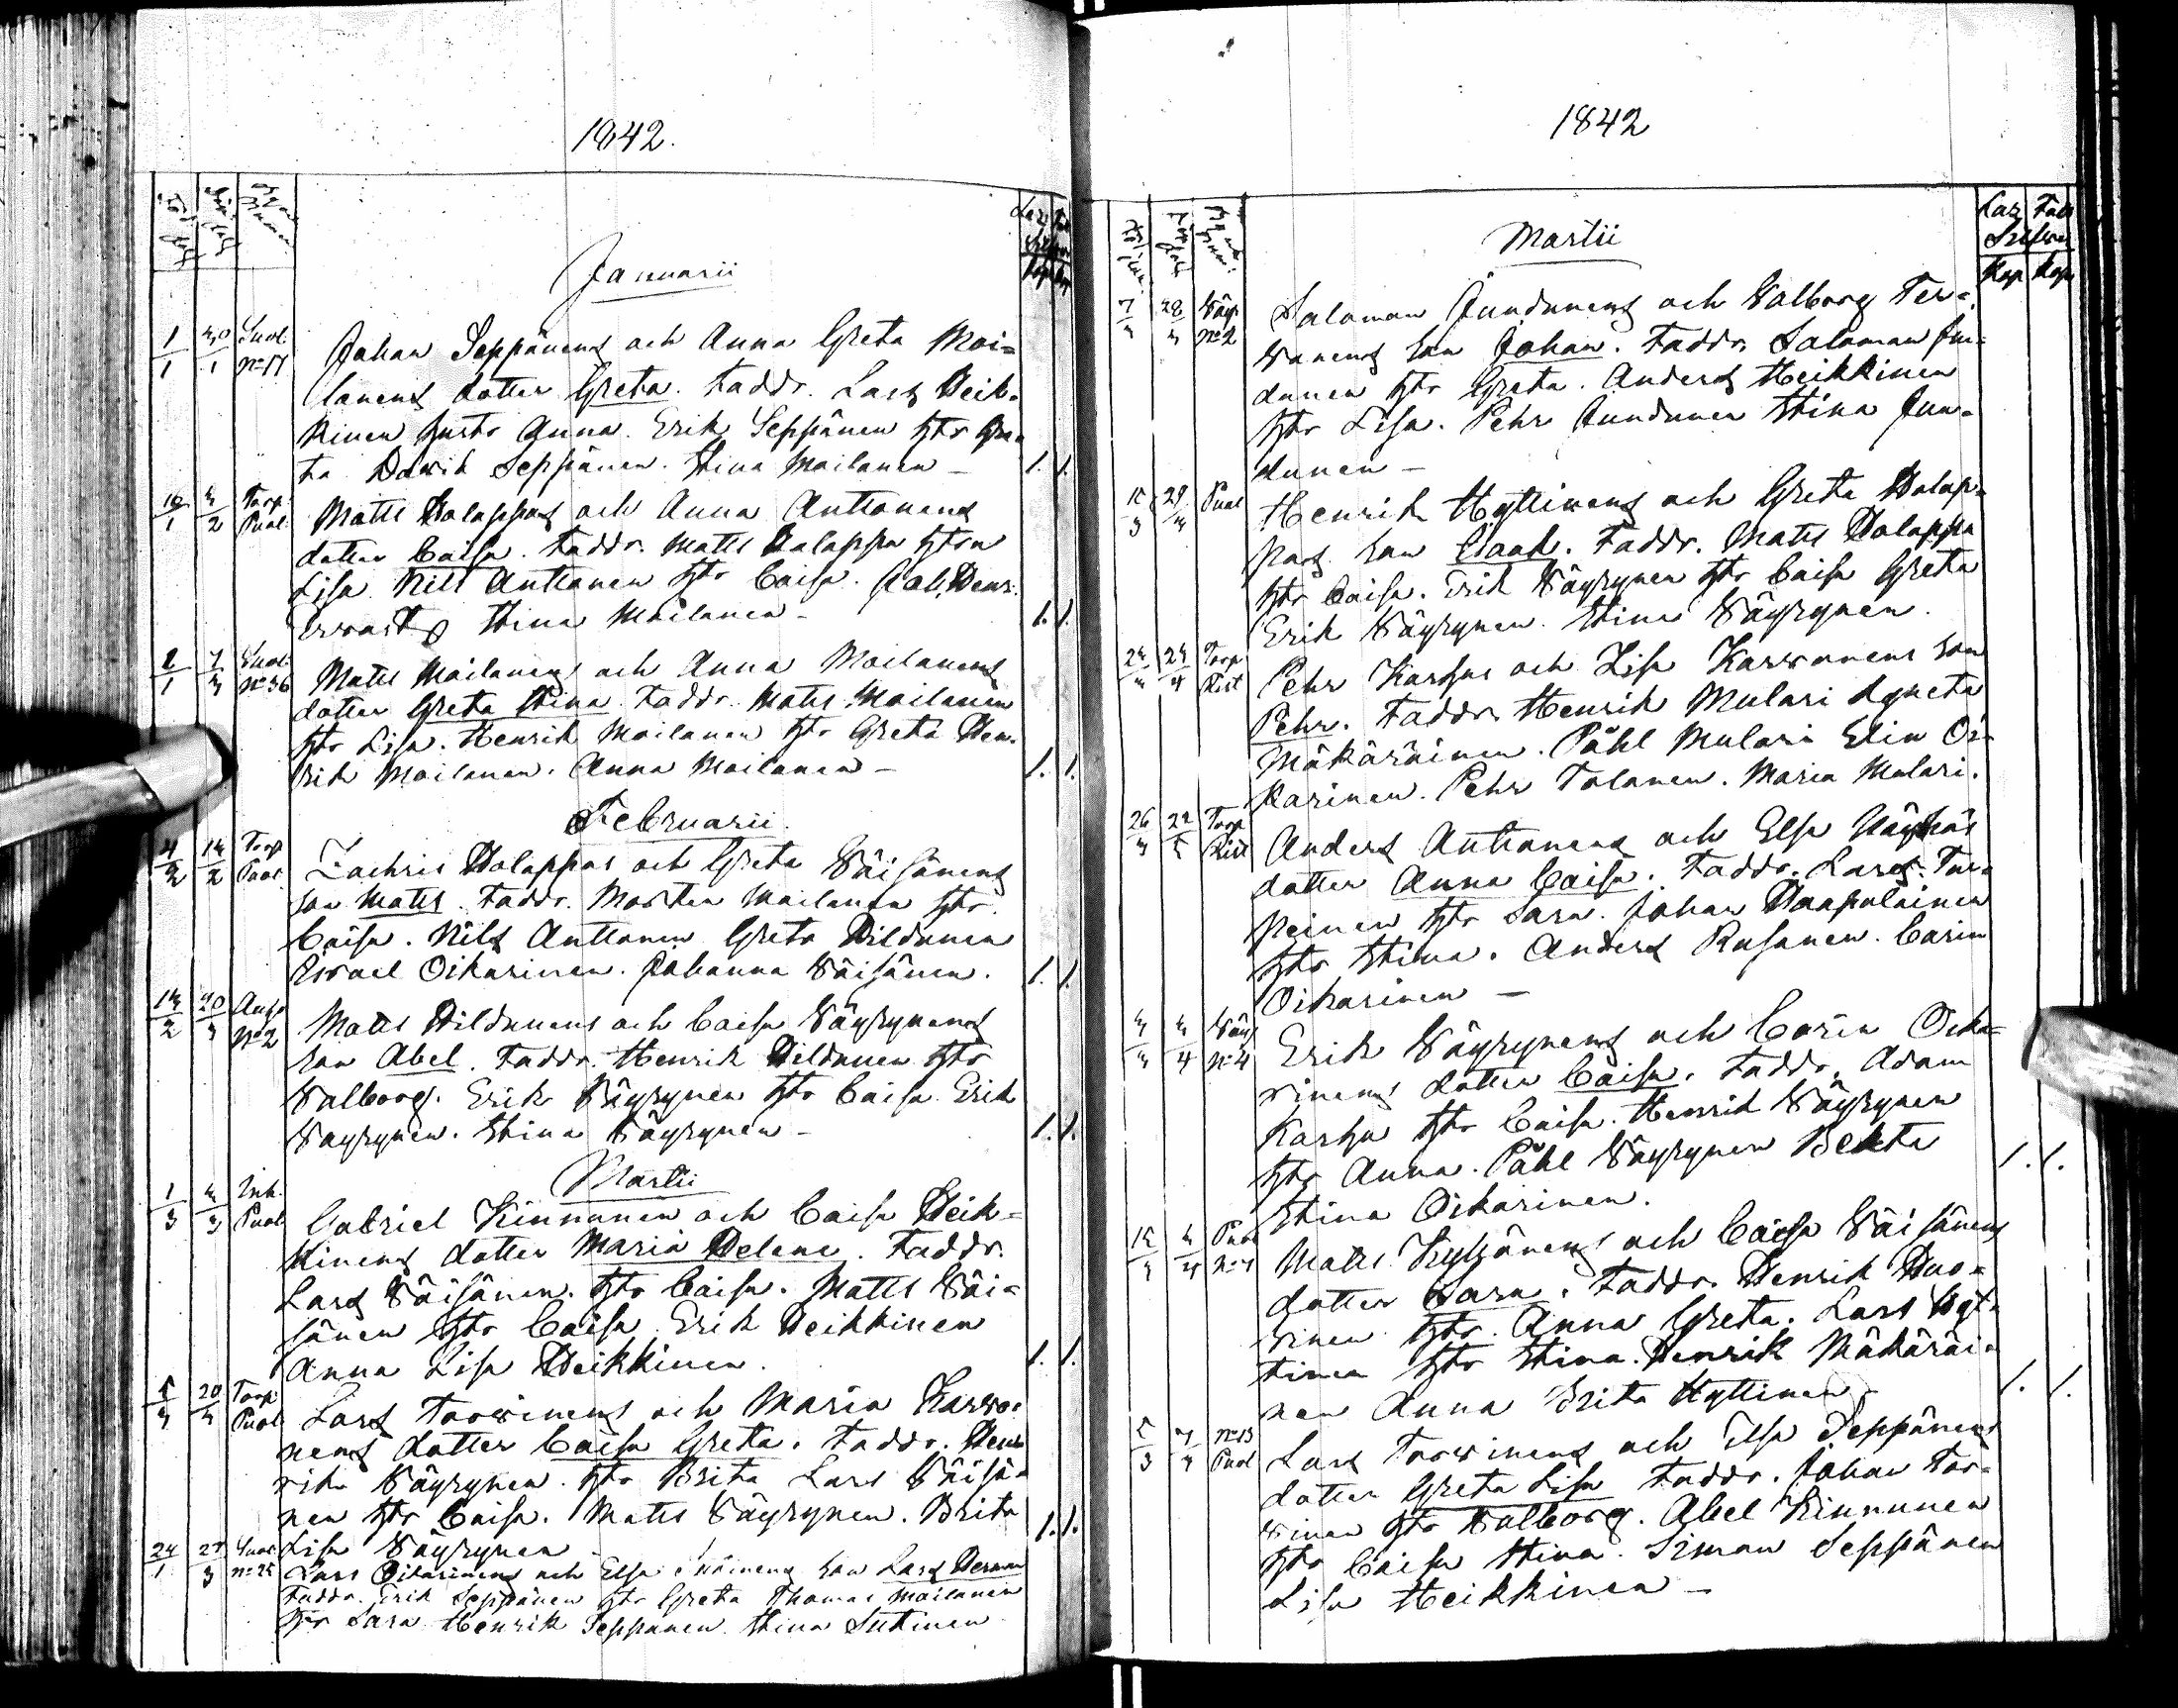 1842.
Januarii
1/1 30/1 Suol. No 17 Johan Seppänens och Anna Greta Moi=
lanens dotter Greta. Faddr. Lars Heik-
kinen hustr Anna. Erik Seppänen htr Gre-
ta David Seppänen. Stina Moilanen – 1. 1.
Torp. Puol. Matts Halappas och Anna Anttonens
dotter Caisa. Faddr. Matts Halappa htru
Lisa Nils Anttonen htr Caisa. Henr.
Stina Moilanen – 1. 1.
Suol. No 36 Matts Moilanens och Anna Moilanens
dotter Greta Stina. Faddr. Matts Moilanen
htr Lisa. Henrik Moilanen htr Greta Hen-
rik Moilanen. Anna Moilanen – 1. 1.
Februarii
4/2 Torp Puol Zachris Halappas och Greta Väisänens
son Matts. Faddr. Morten Moilanen htr.
Caisa. Nils Anttonen Greta Hildunen
Israel Oikarinen. Johanna Väisänen. 1. 1.
20/3 No 2 Matts Hildunens och Caisa Väyrynens
son Abel. Faddr. Henrik Hildunen htr
Valborg. Erik Väyrynen htr Caisa Erik
Väyrynen. Stina Väyrynen – 1. 1.
Martii
1/3 Inh. Puol Gabriel Kinnunen och Caisa Heik=
kinens dotter Maria Helena. Faddr.
Lars Väisänen. htr Caisa. Matts Väi=
sänen htr Caisa. Erik Heikkinen
Anna Lisa Heikkinen. 1. 1.
20/3 Torp. Puol Lars Torvinens och Maria Karvo-
nens dotter Caisa Greta. Faddr. Hen
rik Väyrynen. htr Brita Lars Väisä-
nen htr Caisa. Matts Väyrynen. Brita 1. 1.
Lisa Väyrynen
Suol. No 25 Lars Oikarinens och Elsa son Lars Herman
Faddr. Erik Seppänen htr Greta Thomas Moilanen
htr Sara Henrik Seppänen Stina Sutinen
1842
Martii
Kop Kop
Väy. No 2 Salomon Jundunens och Valborg Ter=
vonens son Johan. Faddr. Salomon Jun-
dunen htr Greta. Anders Heikkinen
htr Lisa. Pehr Jundunen Stina Jun-
dunen –
Puol Henrik Hyttinens och Greta Halap-
pas son Isaak. Faddr. Matts Halappa
htr Caisa. Erik Väyrynen htr Caisa Greta
Erik Väyrynen. Stina Väyrynen.
Torp Rist Pehr Karhus och Lisa Karvonens son
Pehr. Faddr. Henrik Mulari Agneta
Mäkäräinen. Påhl Mulari Elin Oi-
karinen. Pehr Tolanen. Maria Mulari.
Torp Rist Anders Anttonens och Elsa
dotter Anna Caisa. Faddr. Lars Tur-
peinen htr Sara. Johan Haapalainen
htr Stina. Anders Rusanen. Carin
Oikarinen –
Väy No 4 Erik Väyrynens och Carin Oika=
rinens dotter Caisa. Faddr. Adam
Karhu htr Caisa. Henrik Väyrynen
htr Anna. Påhl Väyrynen Beata
Stina Oikarinen. 1. 1.
Matts Kyllönens och Caisa Väisänens
dotter Sara. Faddr. Henrik Huo=
vinen htr. Anna Greta. Lars Hyt-
tinen htr Stina. Henrik Mäkäräi-
nen Anna Brita Hyttinen 1. 1.
No 13 Puol Lars Torvinens och Elsa Seppänens
dotter Greta Lisa Faddr. Johan Tor-
vinen htr Valborg. Abel Kinnunen
htr Caisa Stina. Simon Seppänen
Lisa Heikkinen –